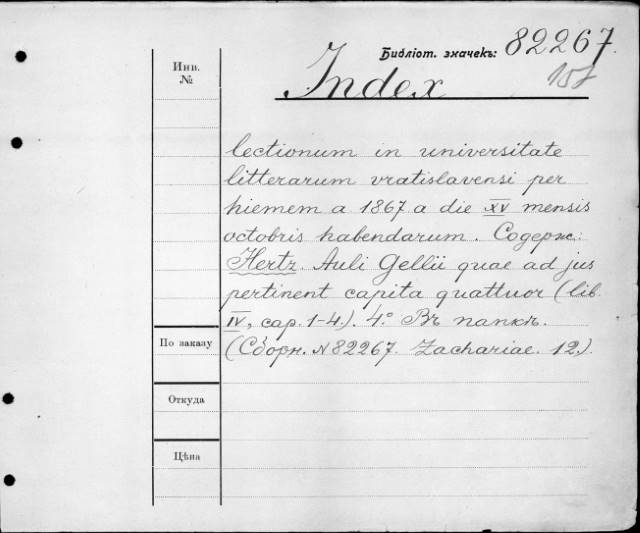 Библіот. значекъ: 82267.
Инв.
№
Index
lectionum in universitate
litterarum vratislavensi per
hiemem a 1867 a die XV mensis
octobris habendarum. Содерж.:
Hertz. Auli Gellii quae ad jus
pertinent capita quattuor (lib.
IV, cap. 1-4.). 4.° Въ папкѣ.
(Сборн. N 82267. Zachariae. 12.).
По заказу
Откуда
Цѣна